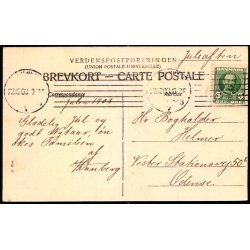 Juleaften
VERDENSPOSTFORENINGEN
(UNION POSTALE UNIVERSELLE)
BREVKORT - CARTE POSTALE
Correspondance
Julen
Glædelig Jul og
godt Nytaar, øn-
skes Familien
af
Hr Bogholder
Helmer
Vester Stationsvej 50
Odense